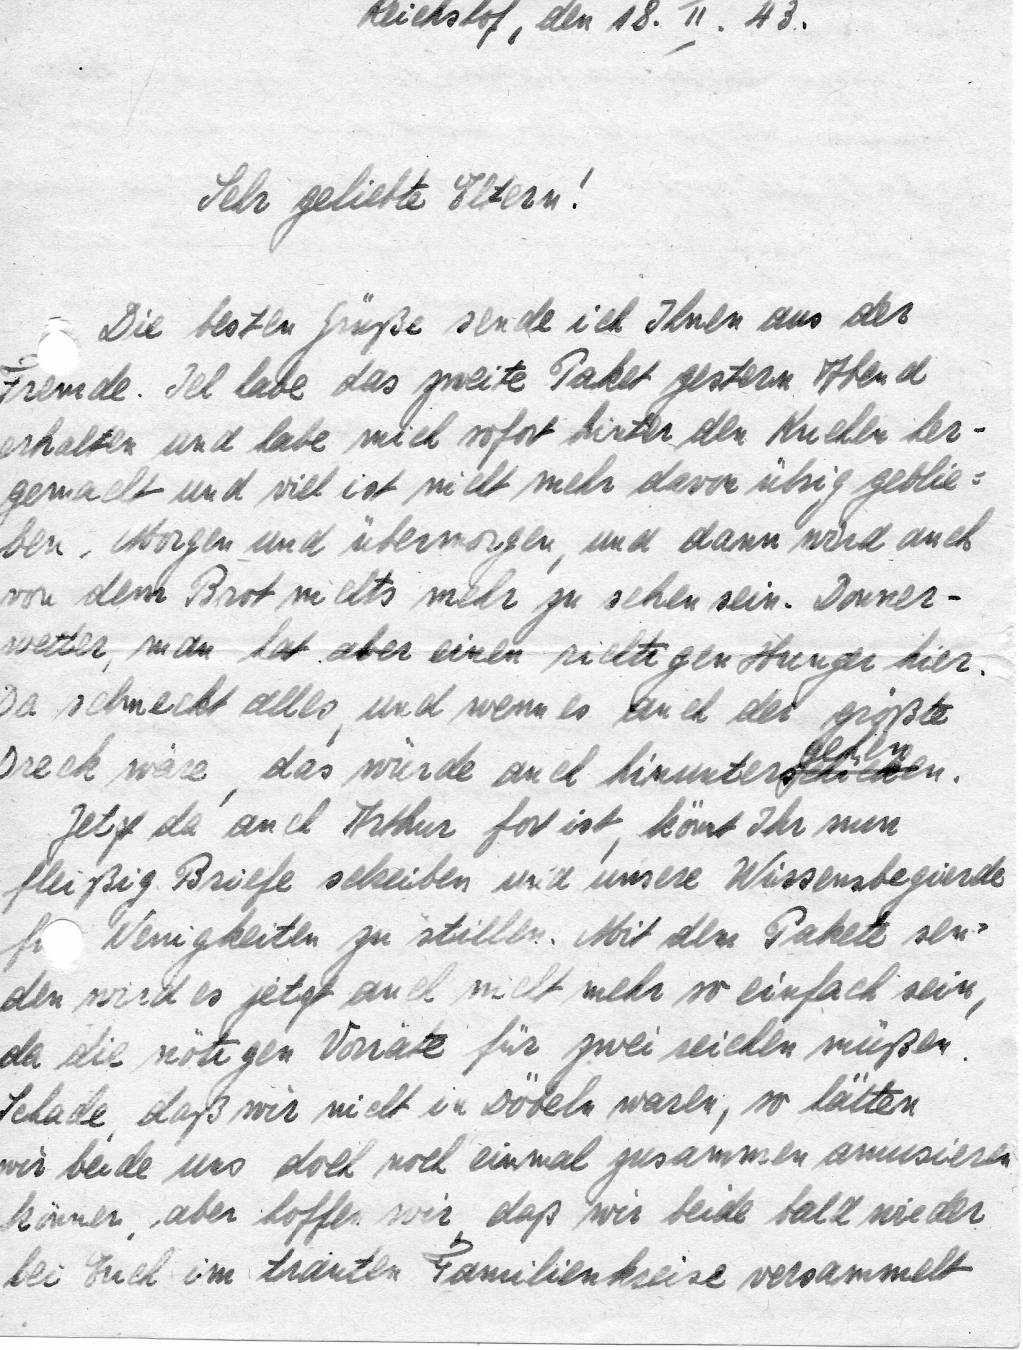 Reichshof, den 18. II. 43.
Sehr geliebte Eltern!
Die besten Grüße sende ich Ihnen aus der
Fremde. Ich habe das zweite Paket gestern Abend
erhalten und habe mich sofort hinter den Kuchen her-
gemacht und viel ist nicht mehr davon übrig geblie=
ben. Morgen und übermorgen, und dann wird auch
von dem Brot nichts mehr zu sehen sein. Donner-
wetter, man hat aber einen richtigen Hunger hier.
Da schmeckt alles, und wenn es auch der größte
Dreck wäre, das würde auch hinunter gehen.
Jetzt da auch Arthur fort ist, könnt Ihr nun
fleißig Briefe schreiben und unsere Wissensbegierde
für Neuigkeiten zu stillen. Mit dem Pakete sen=
den wird es jetzt auch nicht mehr so einfach sein,
da die nötigen Vorräte für zwei reichen müßen.
Schade, daß wir nicht in Döbeln waren, so hätten
wir beide uns doch noch einmal zusammen amusieren
können, aber hoffen wir, daß wir beide bald wieder
bei Euch im trauten Familienkreise versammelt